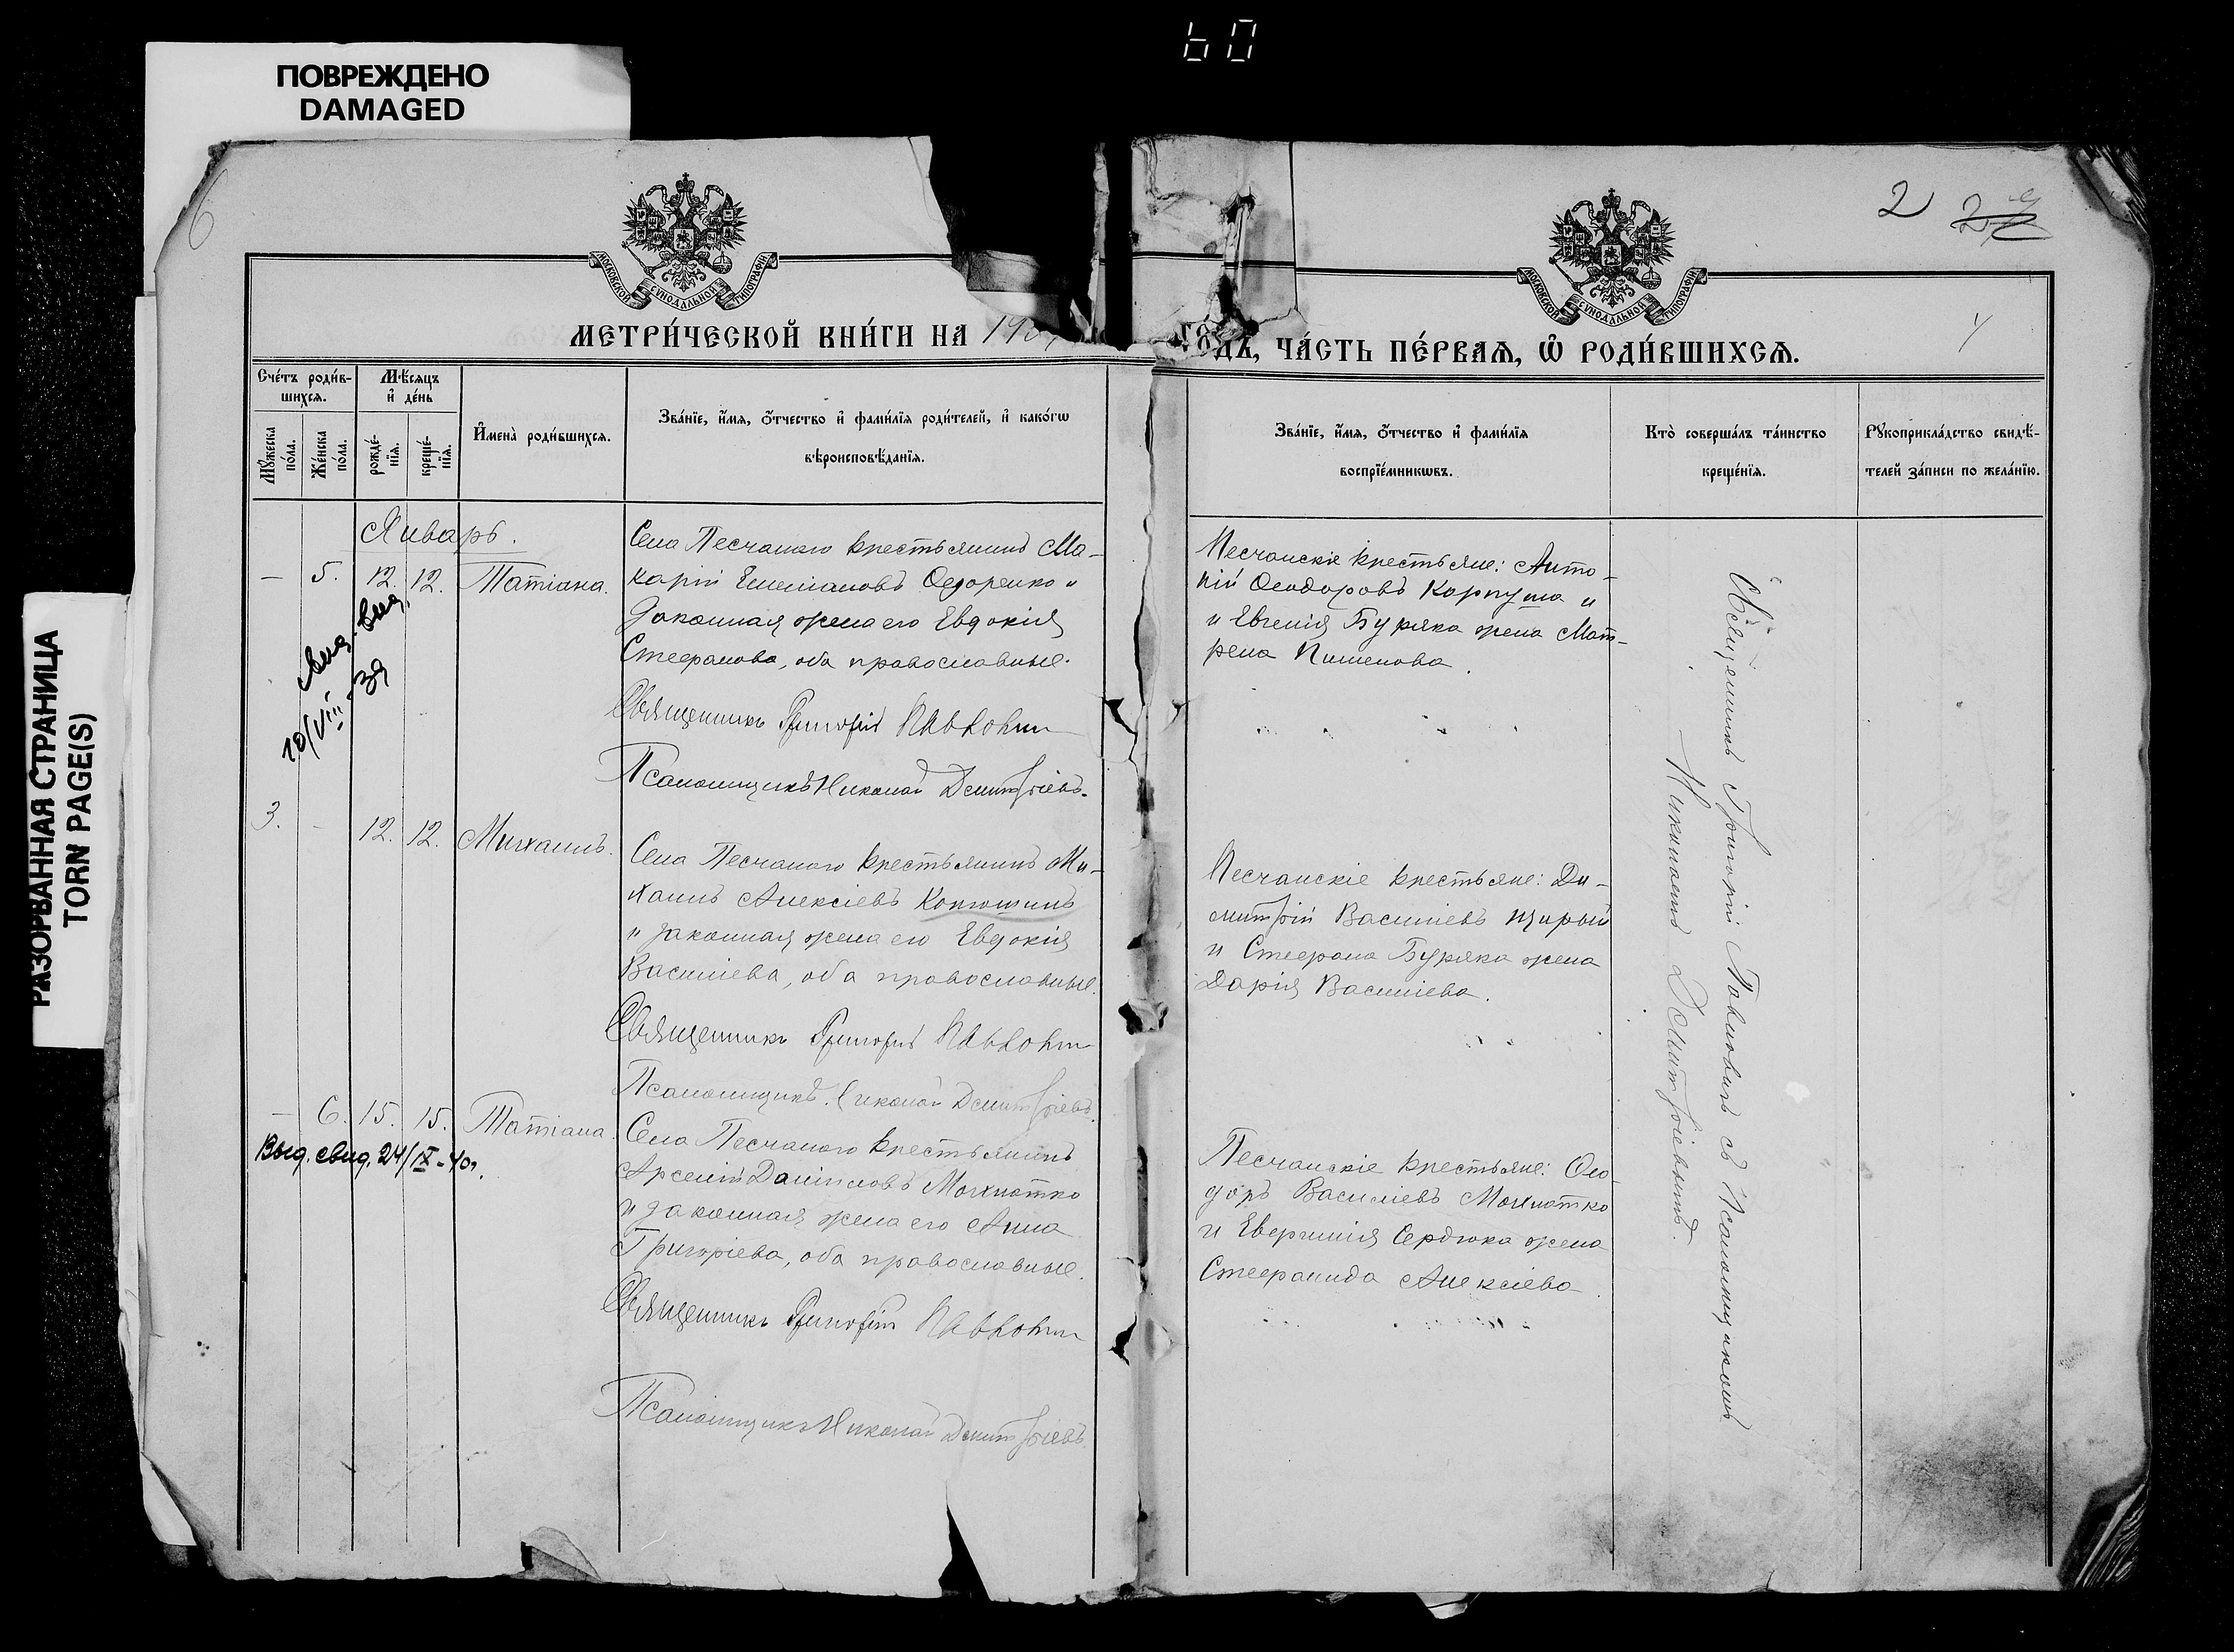 60
ПОВРЕЖДЕНО
DAMAGED
РАЗОРВАННАЯ СТРАНИЦА
TORN PAGE(S)
6
2
МОСКОВСКОЙ СѴНОДАЛЬНОЙ ТИПОГРАФІИ
МОСКОВСКОЙ СѴНОДАЛЬНОЙ ТИПОГРАФІИ
МЕТРИ́ЧЕСКОЙ КНИ́ГИ НА 190
ГО́ДЪ, ЧА́СТЬ ПЕ́РВАЯ, Ѡ҆ РОДИ́ВШИХСЯ.
Сче́тъ роди́в-
шихся.
Мѣ́сяцъ
и҆ де́нь
Мꙋ́жеска
по́ла.
Же́нска
по́ла.
рожде́-
нїя.
креще́-
нїя.
И҆мена̀ роди́вшихся.
Зва́нїе, и҆́мя, ѻ҆́тчество и҆ фами́лїя роди́телей, и҆ како́гѡ
вѣроисповѣ́данїя.
Зва́нїе, и҆́мя, ѻ҆́тчество и҆ фами́лїя
воспрїе́мникѡвъ.
Кто̀ соверша́лъ та́инство
креще́нїя.
Рꙋкоприкла́дство свидѣ́-
телей за́писи по жела́нїю.
Январь.
— 5. 12. 12. Татіана.
Села Песчанаго крестьянинъ Ма-
карій Емеліановъ Федоренко и
законная жена его Евдокія
Стефанова, оба православные.
Священникъ Григорій Павловичъ
Псаломщикъ Николай Димитріевъ.
Песчанскіе крестьяне: Анто-
ній Феодоровъ Карпуша и
и Евгенія Буряка жена Мат-
рена Пименова.
Выд. свид.
10/VIII-39
3. - 12. 12. Михаилъ.
Села Песчанаго крестьянинъ Ми-
хаилъ Алексіевъ Копюшинъ
и законная жена его Евдокія
Василіева, оба православные.
Священникъ Григорій Павловичъ
Псаломщикъ Николай Димитріевъ.
Песчанскіе крестьяне: Ди-
митрій Василіевъ Щирый
и Стефана Буряка жена
Дарія Василіева.
— 6. 15. 15. Татіана.
Выд. свид. 24/IX-40г.
Села Песчанаго крестьянинъ
Арсеній Даніиловъ Мохнатко
и законная жена его Анна
Григоріева, оба православные.
Священникъ Григорій Павловичъ
Псаломщикъ Николай Димитріевъ.
Песчанскіе крестьяне: Фео-
доръ Василіевъ Мохнатко
и Евфимія Сердюка жена
Стефанида Алексіева.
Священникъ Григорій Павловичъ съ Псаломщикомъ
Николаемъ Димитріевымъ.